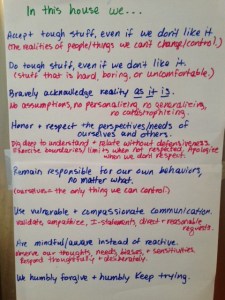 In this house we...
Accept tough stuff, even if we don't like it.
(the realities of people/things we can't change/control.)
Do tough stuff, even if we don't like it.
(stuff that is hard, boring, or uncomfortable.)
Bravely acknowledge reality as it is.
No assumptions, no personalizing, no generalizing,
no catastrophizing.
Honor + respect the perspectives/needs of
ourselves and others.
Dig deep to understand + relate without defensiveness.
Exercise boundaries/limits when not respected. Apologize
when we don't respect.
Remain responsible for our own behaviors,
no matter what.
(ourselves = the only thing we can control.)
Use vulnerable + compassionate communication.
Validate, empathize, I-statements, direct + reasonable
requests.
Are mindful/aware instead of reactive.
Observe our thoughts, needs, biases, + sensitivities.
Respond thoughtfully + deliberately.
We humbly forgive + humbly keep trying.